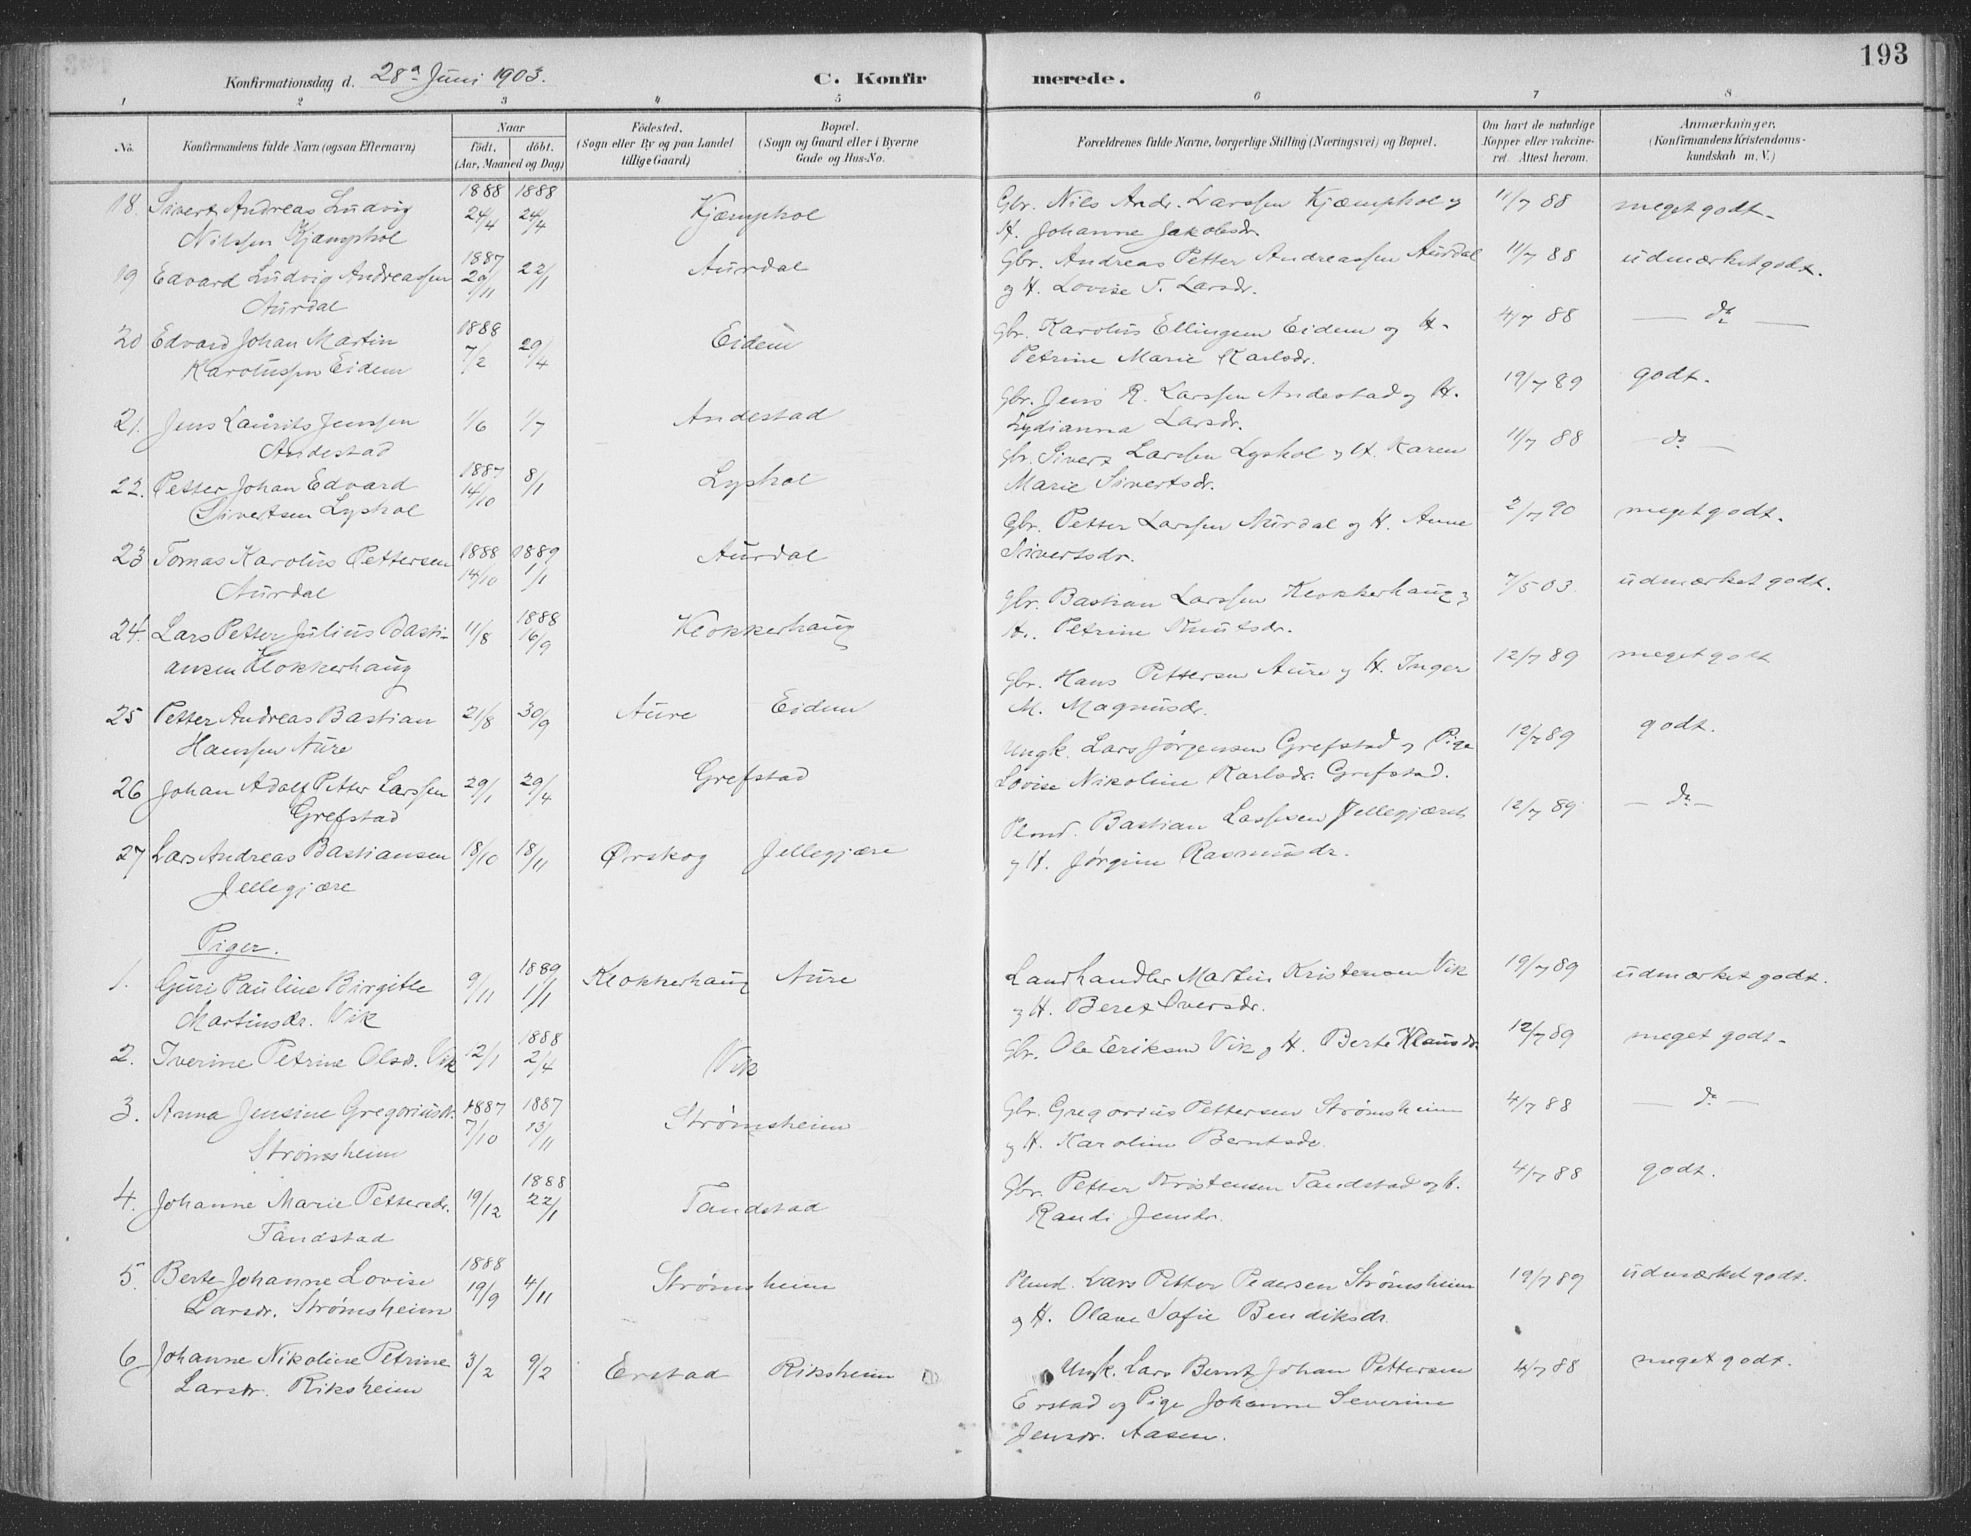 193
Konfirmationsdag d. 28de Juni 1903. C. Konfirmerede.
1 2 3 4 5 6 7 8
No. Konfirmandens fulde Navn (ogsaa Efternavn) Naar födt. döbt. (Aar, Maaned og Dag) Födested. (Sogn eller By og paa Landet tillige Gaard) Bopæl. (Sogn og Gaard eller i Byerne Gade og Hus-No. Forældrenes fulde Navne, borgerlige Stilling (Næringsvei) og Bopæl. Om havt de naturlige Kopper eller vakcineret. Attest herom. Anmærkninger. (Konfirmandens Kristendomskundskab m. V.)
18. Sivert Andreas Ludvig 1888 24/4 1888 24/4 Kjæmphol Gbr. Nils Andr. Larssen Kjæmphol og 11/7 88 meget godt.
Nilssen Kjæmphol H. Johanne Jakobsdr.
19 Edvard Ludvig Andreassen 1887 29/11 22/1 Aurdal Gbr. Andreas Petter Andreassen Aurdal 11/7 88 udmærket godt.
Aurdal og H. Lovise T. Larsdr.
20 Edvard Johan Martin 1888 7/2 29/4 Eidem Gbr. Karolus Ellingsen Eidem og H. 4/7 88 — do —
Karolussen Eidem Petrine Marie Karlsdr.
21. Jens Laurits Jenssen 1/6 1/7 Andestad Gbr. Jens R. Larssen Andestad og H. 19/7 89 godt.
Andestad Lydianna Larsdr.
22. Petter Johan Edvard 1887 14/10 8/1 Lyshol Gbr. Sivert Larssen Lyshol og H. Karen 11/7 88 — do —
Sivertsen Lyshol Marie Sivertsdr.
23 Tomas Karolus Pettersen 1888 14/10 1889 1/1 Aurdal Gbr. Petter Larssen Aurdal og H. Anne 2/7 90 meget godt.
Aurdal Sivertsdr.
24. Lars Petter Julius Basti- 11/8 1888 16/9 Klokkerhaug Gbr. Bastian Larssen Klokkerhaug og 7/5 03 udmærket godt.
ansen Klokkerhaug H. Petrine Knutsdr.
25 Petter Andreas Bastian 21/8 30/9 Aure Eidem Gbr. Hans Pettersen Aure og H. Inger 12/7 89 meget godt
Hanssen Aure M. Magnusdr.
26 Johan Adolf Petter Larssen 29/1 29/4 Grefstad Ungk. Lars Jørgensen Grefstad og Pige 12/7 89 godt.
Grefstad Lovise Nikoline Karlsdr. Grefstad.
27 Lars Andreas Bastiansen 18/10 18/11 Ørskog Jellegjære Plmd. Bastian Larssen Jellegjæret 12/7 89 — do —
Jellegjære og H. Jørgine Rasmusdr.
Piger.
1. Guri Pauline Birgitte 9/11 1889 1/1 Klokkerhaug Aure Landhandler Martin Kristensen Vik 19/7 89 udmærket godt.
Martinsdr. Vik og H. Beret Iversdr.
2. Iverine Petrine Olsdr. Vik 12/1 1888 2/4 Vik Gbr. Ole Eriksen Vik og H. Berte Klausdr. 12/7 89 meget godt.
3. Anna Jensine Gregoriusdr. 1887 7/10 1887 13/11 Strømsheim Gbr. Gregorius Pettersen Strømsheim 4/7 88 — do —
Strømsheim og H. Karoline Berntsdr.
4. Johanne Marie Pettersdr. 19/12 1888 22/1 Tandstad Gbr. Petter Kristensen Tandstad og H. 4/7 88 godt.
Tandstad Randi Jensdr.
5 Berte Johanne Lovise 1888 19/9 4/11 Strømsheim Plmd. Lars Petter Pedersen Strømsheim 19/7 89 udmærket godt.
Larsdr. Strømsheim og H. Olave Sofie Bendiksdr.
6 Johanne Nikoline Petrine 3/2 9/2 Erstad Riksheim Ungk. Lars Bernt Johan Pettersen 4/7 88 meget godt.
Larsdr. Riksheim Erstad og Pige Johanne Severine
Jensdr. Aasen.